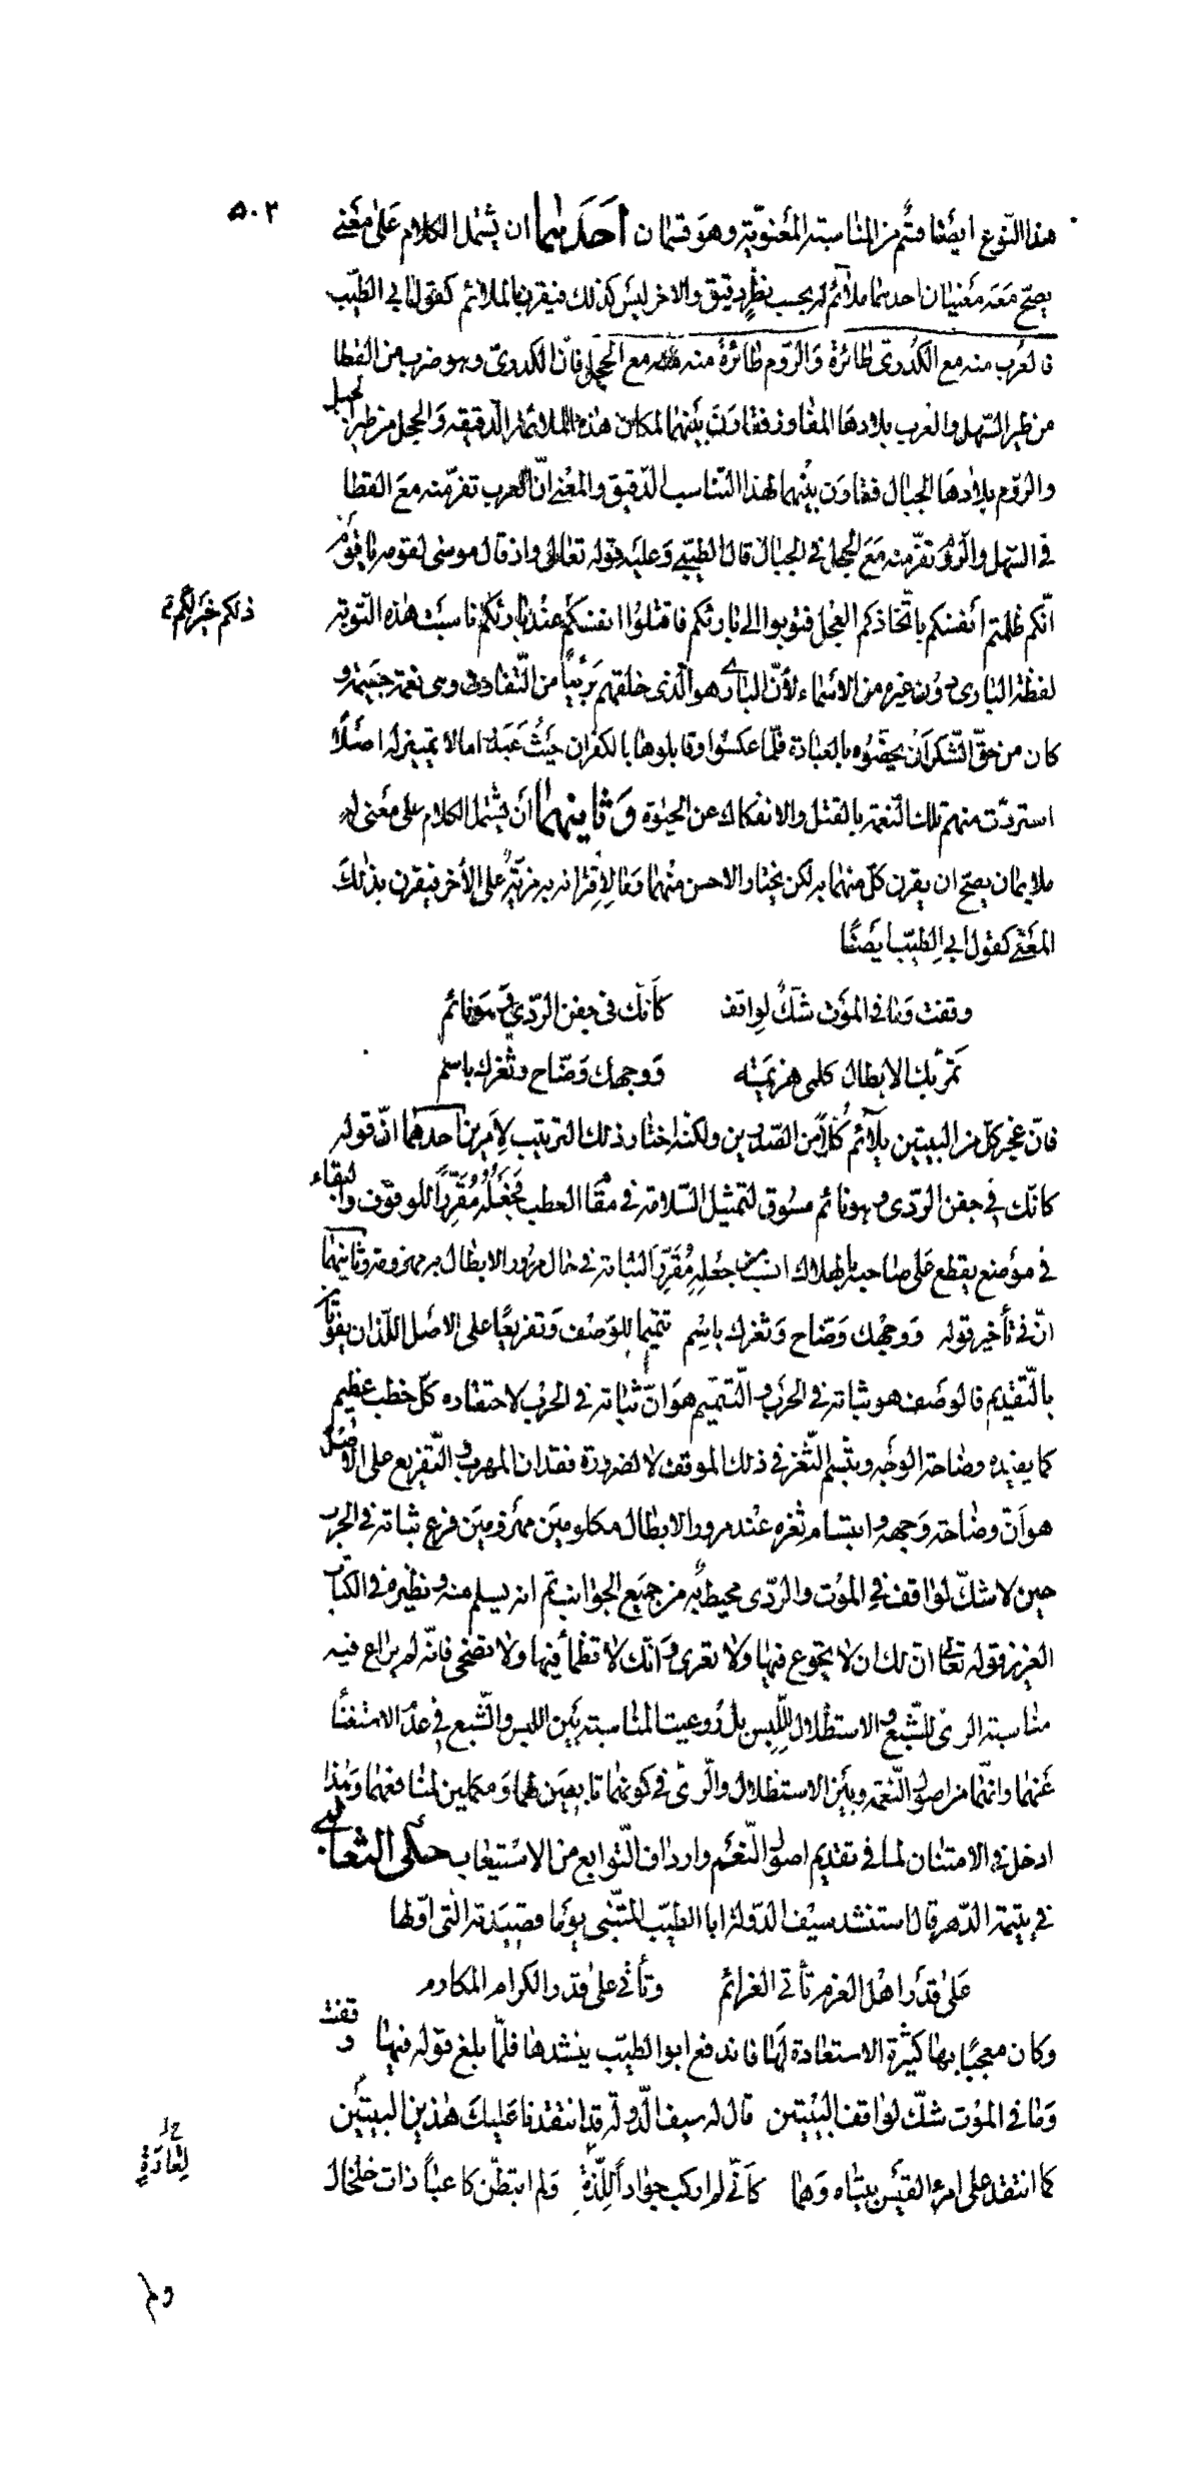 ٥٠٢
هذا النّوع ايضًا قسم من المناسبة المعنويّة وهو قسمان احدهما ان يشتمل الكلام على معنى
يصحّ معه معنيان احدهما ملائم له بحسب نظر دقيق والاخر ليس كذلك فيقرن بالملائم كقول ابي الطيّب
فالعرب منه مع الكدريّ طائرة والروم طائرة منه مع الحجل فانّ الكدريّ وهو ضرب من القطا
من طير السّهل والعرب بلادها المفاوز فقارن بينهما لمكان هذه الملائمة الدّقيقة والحجل من طير الجبل
والروم بلادها الجبال فقارن بينهما لهذا التّناسب الدّقيق والمعنى انّ العرب تفرّ منه مع القطا
في السّهل والروم تفرّ منه مع الحجل في الجبال قال الطيبي وعليه قوله تعالى واذ قال موسى لقومه يا قوم
انّكم ظلمتم أنفسكم باتّخاذكم العجل فتوبوا الى بارئكم فاقتلوا انفسكم عند بارئكم ناسبت هذه التّوبة
ذلكم خير لكم
لفظة البارى دون غيره من الاسماء لأنّ البارى هو الّذى خلقهم بريئًا من التّفاوت وهى نعمة جسيمة و
كان من حقّ الشّكر ان يخصّوه بالعبادة فلمّا عكسوا وقابلوها بالكفران حيث عبدوا ما لا تمييز له اصلًا
استردّت منهم تلك النّعمة بالقتل والانفكاك عن الحيوة وثانيهما أن يشتمل الكلام على معنى له
ملايمان يصحّ ان يقرن كلّ منهما به لكن يختار الاحسن منهما وما لاقترانه به مزيّة على الأخر فيقرن بذلك
المعنى كقول ابي الطيّب ايضًا
وقفت وما في الموت شكّ لواقف كأنّك فى جفن الردّى وهو نائم
تمرّ بك الابطال كلمى هزيمة ووجهك وضّاح وثغرك باسم
فانّ عجز كلّ من البيتين يلائم كلًّا من الصّدرين ولكنّه اختار ذلك الترتيب لأمرين احدهما انّ قوله
كانّك في جفن الردّى وهو نائم مسوق لتمثيل السّلامة في مقام العطب فجعله مقرّرًا للوقوف والبقاء
في موضع يقطع على صاحبه بالهلاك انسب من جعله مقرّرًا لثباته في حال مرور الابطال به مهزومة وثانيهما
انّ في تأخير قوله ووجهك وضّاح وثغرك باسم تتميما للوصف وتفريعًا على الاصل اللّذان يفوتان
بالتّقديم فالوصف هو ثباته في الحرب والتّتميم هو انّ ثباته في الحرب لاحتقاره كلّ خطب عظيم
كما يفيده وضاحة الوجه وتبسّم الثّغر في ذلك الموقف لا لضرورة فقدان المهرب والتّفريع على الاصل
هو انّ وضاحة وجهه وابتسام ثغره عند مرور الابطال مكلومين مهزومين فرع ثباته في الحرب
حين لا شكّ لواقف في الموت والردّى محيط به من جميع الجوانب ثم انه يسلم منه ونظيره في الكتاب
العزيز قوله تعالى انّ لك ان لا تجوع فيها ولا تعرى وانّك لا تظمأ فيها ولا تضحى فانّه لم يراع فيه
مناسبة الرى للشّبع والاستظلال للّبس بل روعيت المناسبة بين اللبس والشّبع في عدم الاستغناء
عنهما وانّهما من اصول النّعمة وبين الاستظلال والرّى في كونهما تابعين لهما ومكملين لمنافعهما وهذا
ادخل في الامتنان لما في تقديم اصول النّعم وارداف التّوابع من الاستيعاب حكى الثعالبي
في يتيمة الدّهر قال استنشد سيف الدّولة ابا الطيّب المتنبّى يومًا قصيدته الّتى اوّلها
على قدر اهل العزم تأتى العزائم وتأتى على قدر الكرام المكارم
وكان معجبًا بها كثيرة الاستعادة لها فاندفع ابو الطيّب ينشدها فلمّا بلغ قوله فيها وقفت
وما في الموت شكّ لواقف البيتين قال له سيف الدّولة قد انتقدنا عليك هذين البيتين
كما انتقد على امرئ القيس بيتاه وهما كأنّى لم اركب جوادًا للذّة ولم اتبطّن كاعبًا ذات خلخال